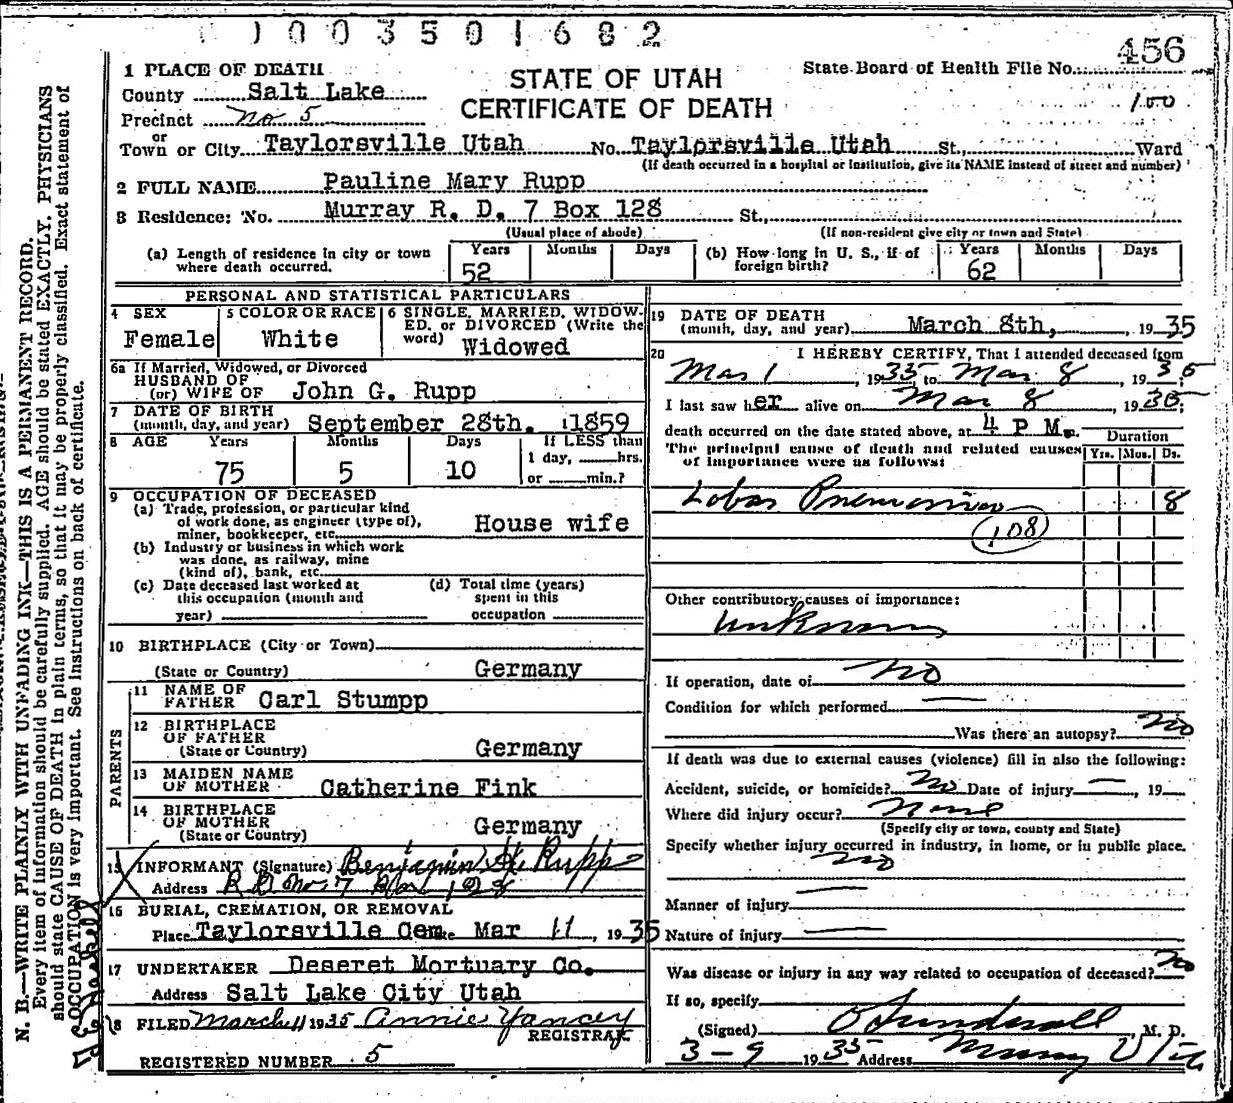 1003501682
456
1 PLACE OF DEATH
STATE OF UTAH
CERTIFICATE OF DEATH
State Board of Health File No.
100
County Salt Lake
Precinct No 5
or
Town or City Taylorsville Utah No. Taylorsville Utah St., Ward
(If death occurred in a hospital or institution, give its NAME instead of street and number)
2 FULL NAME Pauline Mary Rupp
3 Residence: No. Murray R. D. 7 Box 128 St.,
(Usual place of abode) (If non-resident give city or town and State)
(a) Length of residence in city or town where death occurred. Years 52 Months Days
(b) How long in U. S., if of foreign birth? Years 62 Months Days
PERSONAL AND STATISTICAL PARTICULARS
4 SEX Female
5 COLOR OR RACE White
6 SINGLE, MARRIED, WIDOWED, or DIVORCED (Write the word) Widowed
6a If Married, Widowed, or Divorced
HUSBAND OF
(or) WIFE OF John G. Rupp
7 DATE OF BIRTH
(month, day, and year) September 28th. 1859
8 AGE Years Months Days If LESS than
75 5 10 1 day, hrs.
or min.?
9 OCCUPATION OF DECEASED
(a) Trade, profession, or particular kind
of work done, as engineer (type of),
miner, bookkeeper, etc. House wife
(b) Industry or business in which work
was done, as railway, mine
(kind of), bank, etc.
(c) Date deceased last worked at
this occupation (month and
year)
(d) Total time (years)
spent in this
occupation
10 BIRTHPLACE (City or Town)
(State or Country) Germany
PARENTS
11 NAME OF
FATHER Carl Stumpp
12 BIRTHPLACE
OF FATHER
(State or Country) Germany
13 MAIDEN NAME
OF MOTHER Catherine Fink
14 BIRTHPLACE
OF MOTHER
(State or Country) Germany
15 INFORMANT (Signature) Benjamin H Rupp
Address R.D. No. 7 Box 128
16 BURIAL, CREMATION, OR REMOVAL
Place Taylorsville Cem Mar 11, 1935
17 UNDERTAKER Deseret Mortuary Co.
Address Salt Lake City Utah
18 FILED March 11 1935 Annie Yancey
REGISTRAR
REGISTERED NUMBER 5
19 DATE OF DEATH
(month, day, and year) March 8th, 1935
20 I HEREBY CERTIFY, That I attended deceased from
Mar 1, 1935 to Mar 8, 1935;
I last saw her alive on Mar 8, 1935;
death occurred on the date stated above, at 4 P M.
The principal cause of death and related causes
of importance were as follows:
Duration
Yrs. Mos. Ds.
Lobar Pneumonia 8
(108)
Other contributory causes of importance:
Unknown
If operation, date of no
Condition for which performed
Was there an autopsy? no
If death was due to external causes (violence) fill in also the following:
Accident, suicide, or homicide? no Date of injury —, 19
Where did injury occur? None
(Specify city or town, county and State)
Specify whether injury occurred in industry, in home, or in public place.
no
Manner of injury
Nature of injury
Was disease or injury in any way related to occupation of deceased? no
If so, specify
(Signed) O Sundwall, M. D.
3-9 1935 Address Murray Utah
N. B.—WRITE PLAINLY WITH UNFADING INK—THIS IS A PERMANENT RECORD.
Every item of information should be carefully supplied. AGE should be stated EXACTLY. PHYSICIANS
should state CAUSE OF DEATH in plain terms, so that it may be properly classified. Exact statement of
OCCUPATION is very important. See instructions on back of certificate.